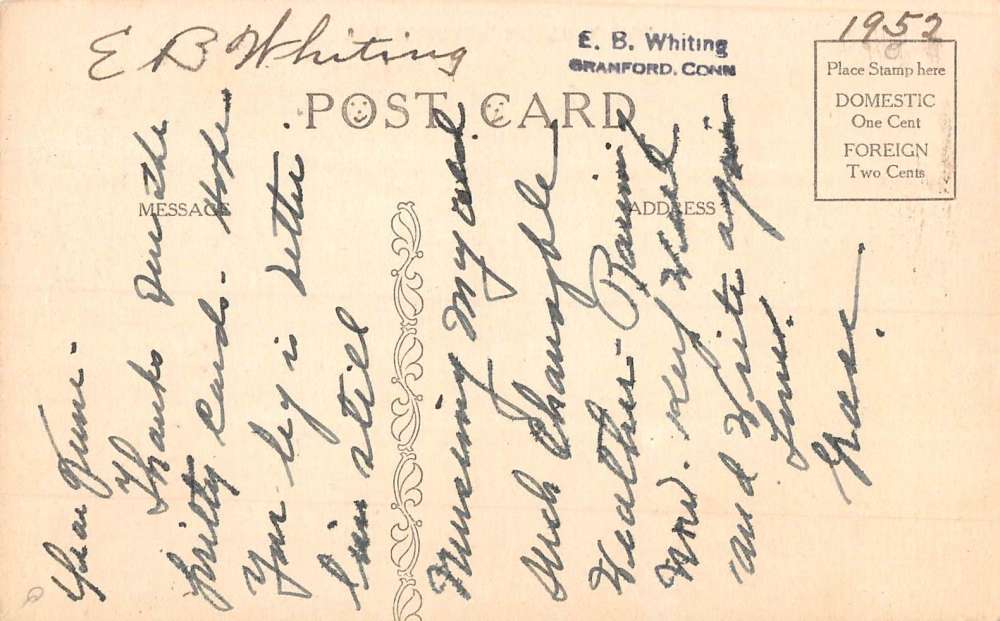 E B Whiting
E. B. Whiting
BRANFORD, CONN
1952
POST CARD
Place Stamp here
DOMESTIC
One Cent
FOREIGN
Two Cents
MESSAGE
ADDRESS
Dear
Thanks Dear the
pretty cards - Hope
Your leg is better.
I'm still
Nursing My cold
Such Changeble
Weather - Raining
Now. Keep Well
and Write again
Love.
Grace.